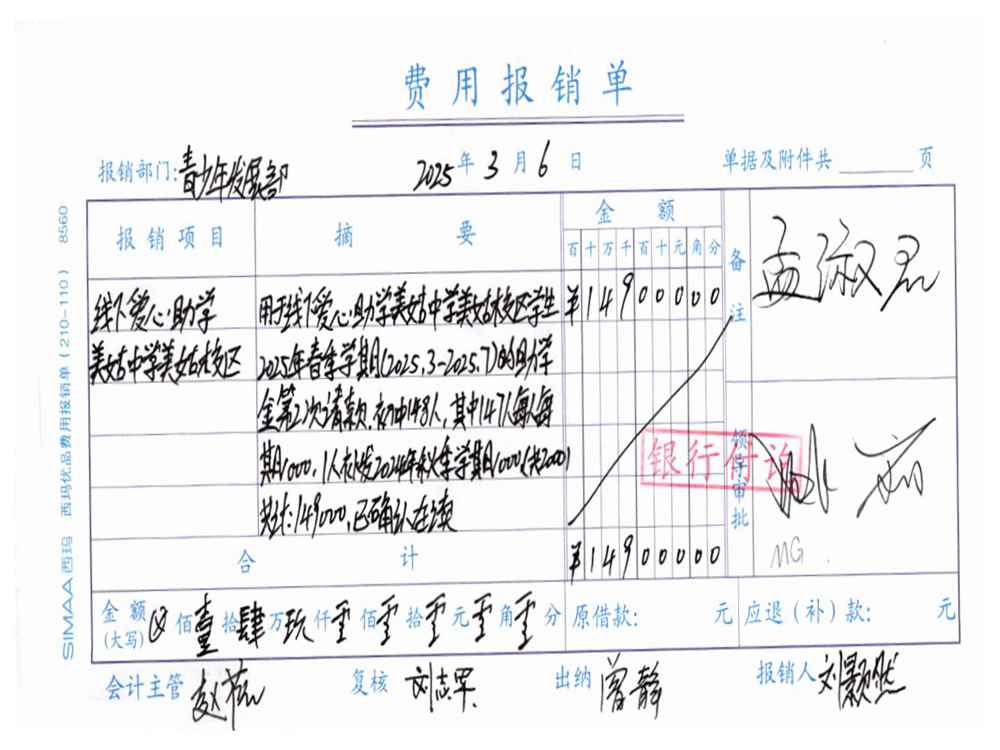 费用报销单
报销部门:青少年发展部 2025年3月6日 单据及附件共 页
报销项目 摘要 金额 备注 孟淑君
百十万千百十元角分
线下爱心助学 用于线下爱心助学美姑中学美姑校区学生 ¥14900000
美姑中学美姑校区 2025年春季学期(2025.3-2025.7)的助学
金第2次请款.初中148人,其中147人每人每
期1000,1人补发2024年秋季学期1000(共2000)
共计:149000,已确认在读
领导审批
银行付讫
MG
合计 ¥14900000
金额(大写) 佰壹拾肆万玖仟零佰零拾零元零角零分 原借款: 元 应退(补)款: 元
会计主管 赵 复核 刘志军 出纳 曾静 报销人 刘颢然
SIMAA西玛 西玛优品费用报销单(210-110) 8560